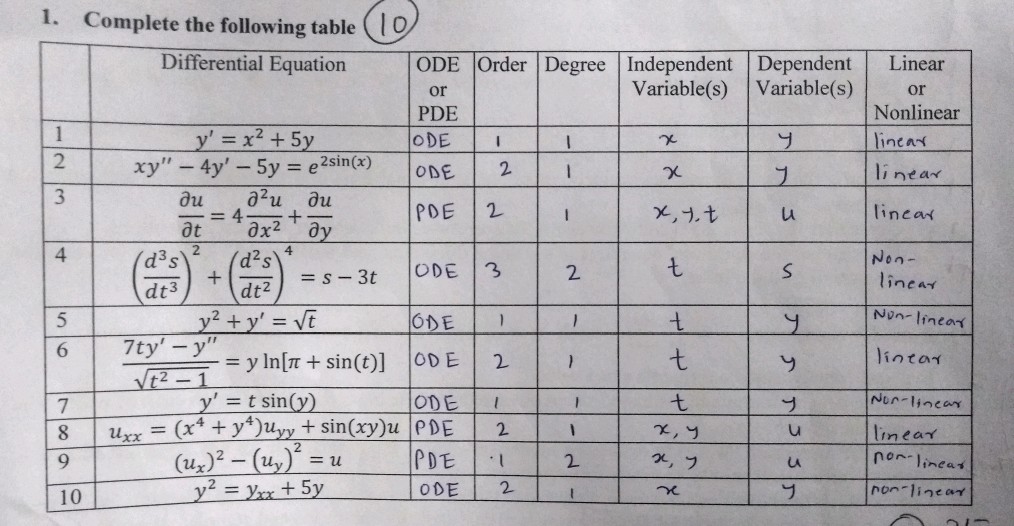 1. Complete the following table (10)
Differential Equation | ODE or PDE | Order | Degree | Independent Variable(s) | Dependent Variable(s) | Linear or Nonlinear
1 | y' = x² + 5y | ODE | 1 | 1 | x | y | linear
2 | xy" − 4y' − 5y = e^(2sin(x)) | ODE | 2 | 1 | x | y | linear
3 | ∂u/∂t = 4 ∂²u/∂x² + ∂u/∂y | PDE | 2 | 1 | x, y, t | u | linear
4 | (d³s/dt³)² + (d²s/dt²)⁴ = s − 3t | ODE | 3 | 2 | t | s | Non-linear
5 | y² + y' = √t | ODE | 1 | 1 | t | y | Non-linear
6 | (7ty' − y")/√(t² − 1) = y ln[π + sin(t)] | ODE | 2 | 1 | t | y | linear
7 | y' = t sin(y) | ODE | 1 | 1 | t | y | Non-linear
8 | uₓₓ = (x⁴ + y⁴)u_yy + sin(xy)u | PDE | 2 | 1 | x, y | u | linear
9 | (uₓ)² − (u_y)² = u | PDE | 1 | 2 | x, y | u | non-linear
10 | y² = yₓₓ + 5y | ODE | 2 | 1 | x | y | non-linear